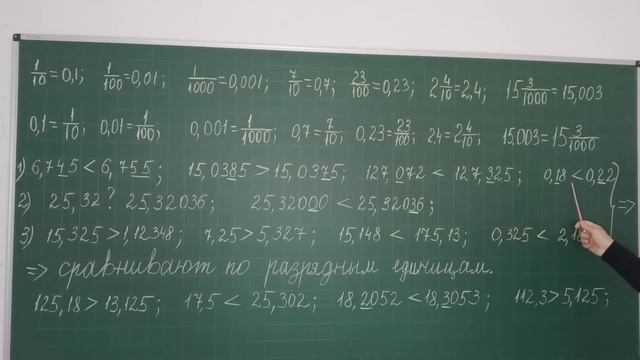 1/10 = 0,1; 1/100 = 0,01; 1/1000 = 0,001; 7/10 = 0,7; 23/100 = 0,23; 2 4/10 = 2,4; 15 3/1000 = 15,003
0,1 = 1/10; 0,01 = 1/100; 0,001 = 1/1000; 0,7 = 7/10; 0,23 = 23/100; 2,4 = 2 4/10; 15,003 = 15 3/1000
1) 6,745 < 6,755; 15,0385 > 15,0375; 127,072 < 127,325; 0,18 < 0,22
2) 25,32 ? 25,32036; 25,32000 < 25,32036; =>
3) 15,325 > 1,12348; 7,25 > 5,327; 15,148 < 175,13; 0,325 <
=> сравнивают по разрядным единицам.
125,18 > 13,125; 17,5 < 25,302; 18,2052 < 18,3053; 112,3 > 5,125;